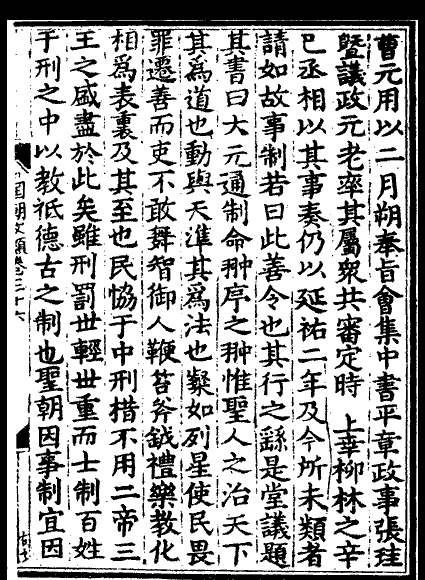 曹元用以二月朔奉旨會集中書平章政事張珪
曁議政元老率其屬衆共審定時 上幸柳林之辛
巳丞相以其事奏仍以延祐二年及今所未類者
請如故事制若曰此善令也其行之繇是堂議題
其書曰大元通制命翀序之翀惟聖人之治天下
其爲道也動與天準其爲法也粲如列星使民畏
罪遷善而吏不敢舞智御人鞭笞斧鉞禮樂教化
相爲表裏及其至也民協于中刑措不用二帝三
王之盛盡於此矣雖刑罰世輕世重而士制百姓
于刑之中以教祗德古之制也聖朝因事制宜因
國朝文類卷三十六